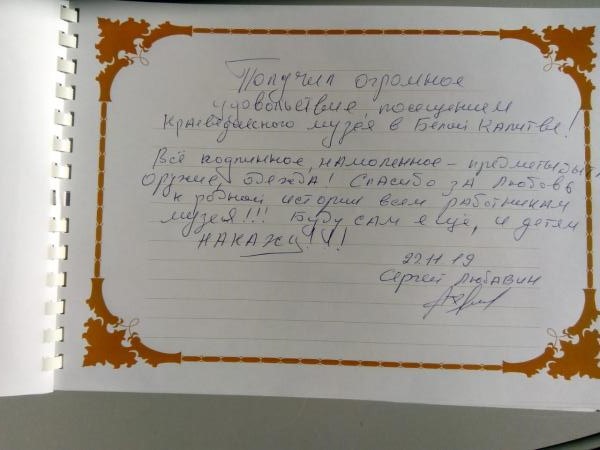 Получил огромное
удовольствие, посещением
Краеведческого музея в Белой Калитве!
Всё подлинное, намоленное - предметы быта
оружие, одежда! Спасибо за Любовь
к родной истории всем работникам
музея!!! Буду сам еще, и детям
НАКАЖУ!!!
22.11.19
Сергей Любавин